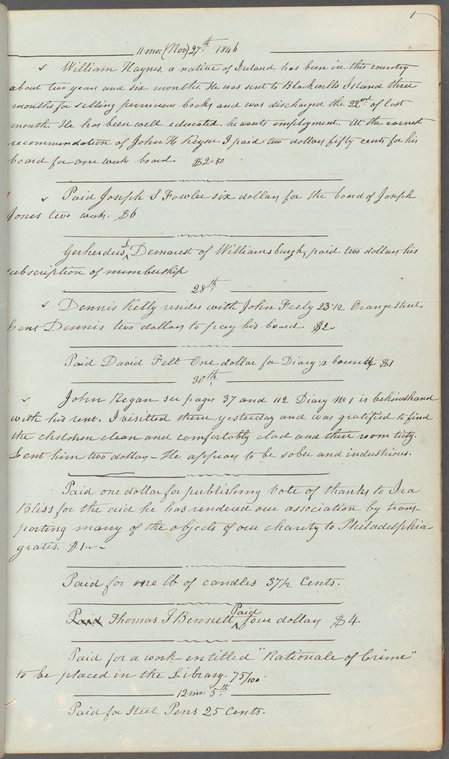 1
11 mo: (Nov) 27th 1846
William Haynes, a native of Ireland has been in this country
about two years and six months. He was sent to Blackwells Island three
months for selling pernicious books and was discharged the 22nd of last
month. He has been well educated he wants employment. At the earnest
recommendation of John H Keyser I paid two dollars fifty cents for his
board for one week board $2.50
Paid Joseph S Fowler six dollars for the board of Joseph
Jones two weeks. $6
Gerherdus Demarest of Williamsburgh, paid two dollars his
subscription of membership
28th
Dennis Kelly resides with John Feely 23 1/2 Orange street
Lent Dennis two dollars to pay his board $2
Paid David Felt One dollar for Diary &c $1
30th
John Regan see pages 37 and 112 Diary No 1 is behindhand
with his rent. I visitted them yesterday and was gratified to find
the children clean and comfortably clad and their room tidy.
Lent him two dollars – He appears to be sober and industrious.
Paid one dollar for publishing vote of thanks to Ira
Bliss for the aid he has rendered our association by trans-
porting many of the objects of our charity to Philadelphia
gratis. $1
Paid for one lb of candles 37 1/2 Cents.
Paid Thomas T Bennett Paid four dollars $4
Paid for a work entitled "Rationale of Crime"
to be placed in the Library. 75/100
12 mo: 5th
Paid for Steel Pens 25 Cents.